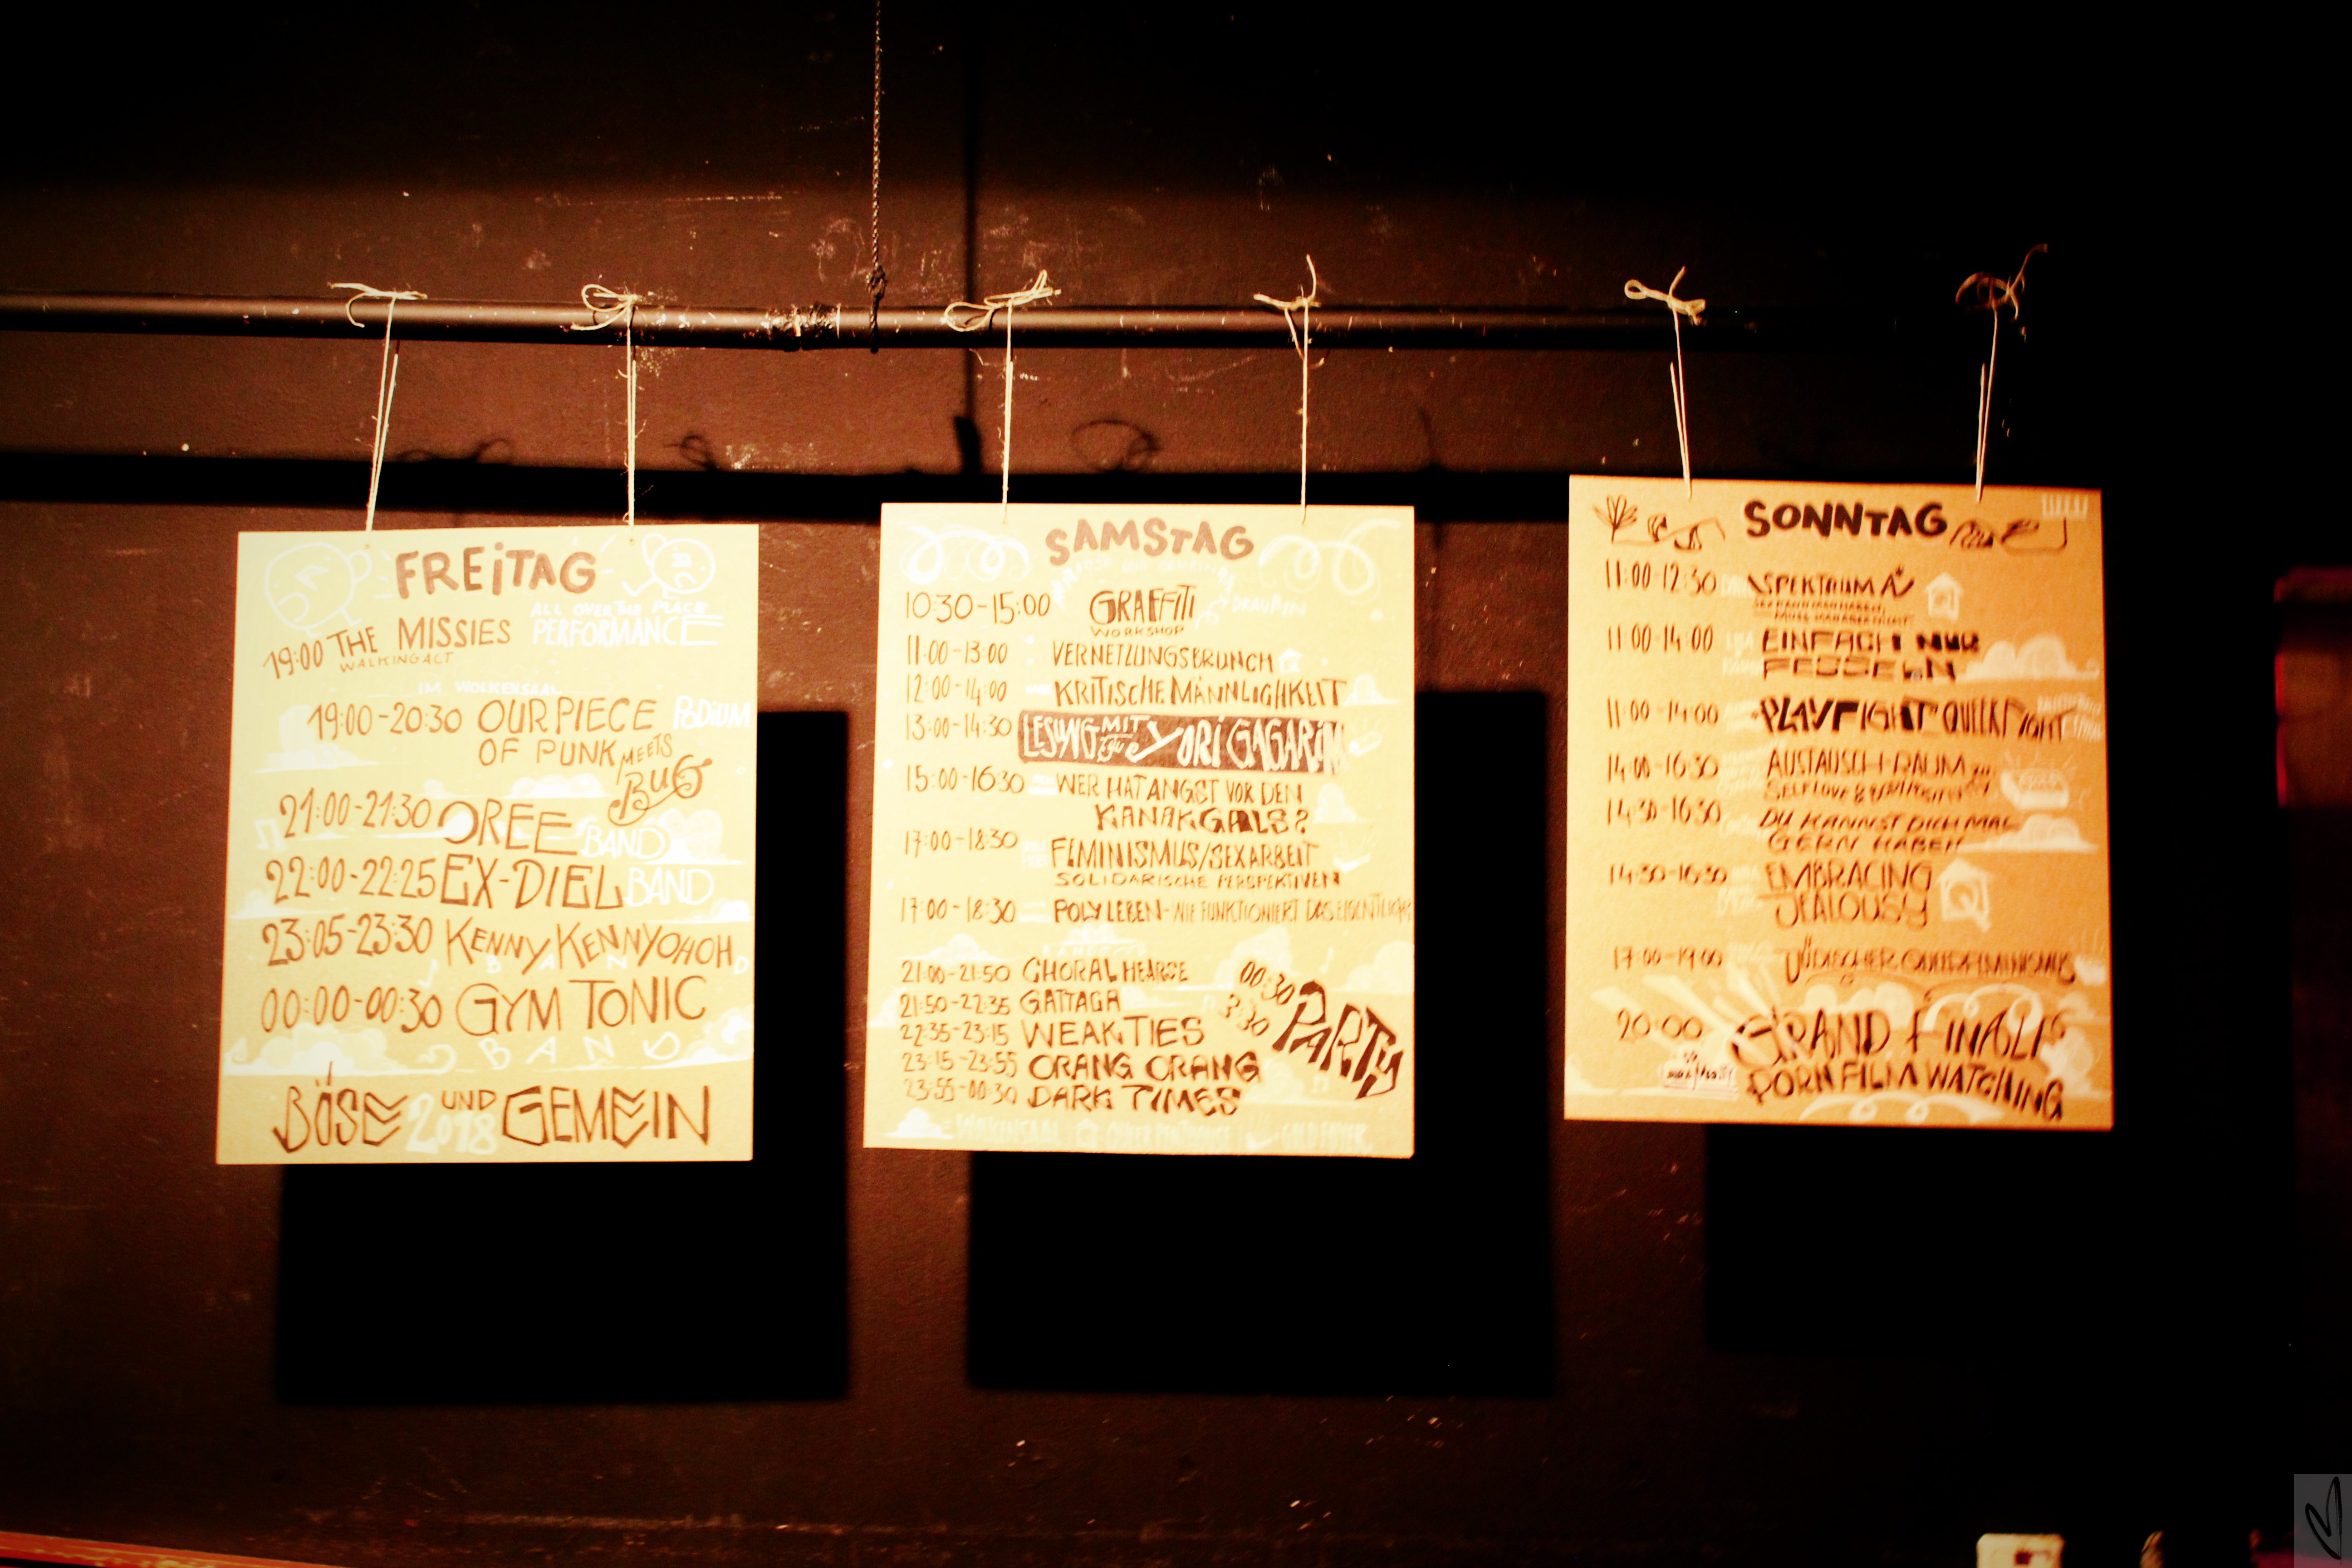 FREiTAG
ALL OVER THE PLACE
PERFORMANCE
19:00 THE MISSIES
WALKINGACT
IM WOLKENSAAL
19:00-20:30 OUR PIECE PODIUM
OF PUNK MEETS
BUG
21:00-21:30 OREE BAND
22:00-22:25 EX-DIEL BAND
23:05-23:30 KENNYKENNYOHOH
BAND
00:00-00:30 GYM TONIC
BAND
BÖSE UND GEMEIN
2018
SAMSTAG
10:30-15:00 GRAFFITI DRAUßEN
WORKSHOP
11:00-13:00 VERNETZUNGSBRUNCH
12:00-14:00 KRITISCHE MÄNNLIGHKEIT
13:00-14:30 LESUNG MIT YORI GAGARIN
15:00-16:30 WER HAT ANGST VOR DEN
KANAKGALS?
17:00-18:30 FEMINISMUS/SEXARBEIT
SOLIDARISCHE PERSPEKTIVEN
17:00-18:30 POLY LEBEN- WIE FUNKTIONIERT DAS EIGENTLICH
21:00-21:50 CHORAL HEARSE
21:50-22:35 GATTAGA
22:35-23:15 WEAK TIES
23:15-23:55 ORANG ORANG
23:55-00:30 DARK TIMES
00:30
3:30
PARTY
SONNTAG
11:00-12:30 SPEKTRUM A
11:00-14:00 EINFACH NUR
FESSELN
11:00-14:00 PLAYFIGHT QUEERFIGHT
14:00-16:30 AUSTAUSCH-RAUM
SELFLOVE &
14:30-16:30 DU KANNST DICH MAL
GERN HABEN
14:30-16:30 EMBRACING
JEALOUSY
17:00-19:00 JÜDISCHER QUEERFEMINISMUS
20:00 GRAND FINALE
PORNFILM WATCHING